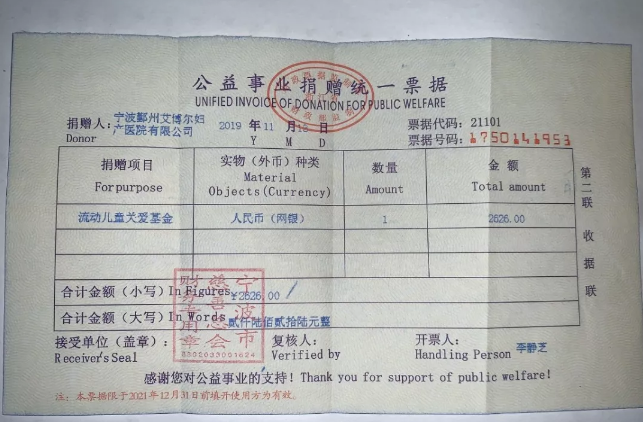 公益事业捐赠统一票据
UNIFIED INVOICE OF DONATION FOR PUBLIC WELFARE
捐赠人：宁波鄞州艾博尔妇产医院有限公司
Donor
2019 年 11 月 18 日
Y M D
票据代码：21101
票据号码：1750141953
捐赠项目 实物（外币）种类 数量 金额
For purpose Material Objects(Currency) Amount Total amount
流动儿童关爱基金 人民币（网银） 1 2626.00
合计金额（小写）In Figures ¥2626.00
合计金额（大写）In Words 贰仟陆佰贰拾陆元整
接受单位（盖章）： 复核人： 开票人：
Receiver's Seal Verified by Handling Person 李静芝
感谢您对公益事业的支持！Thank you for support of public welfare!
注：本票据限于2021年12月31日前填开使用方为有效。
第二联 收据联
宁波市慈善总会财务专用章